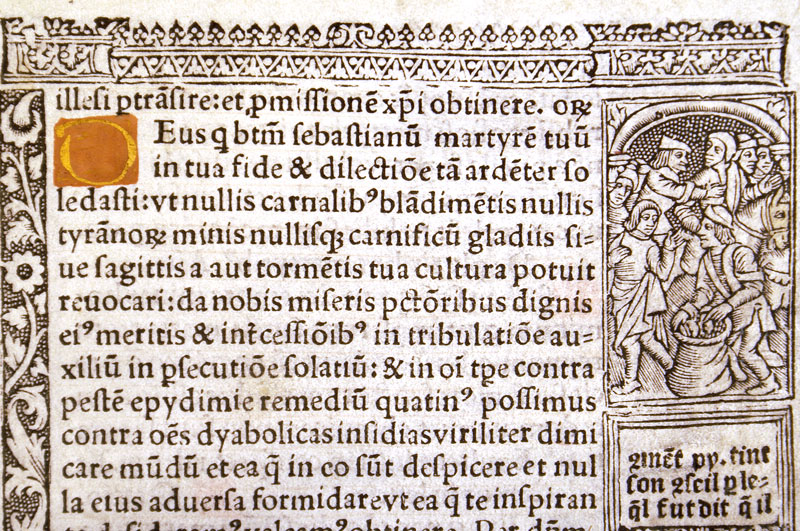 illesi ptrãsire: et ꝓmissionẽ xp̃i obtinere. oꝝ
Deus q btm̃ sebastianũ martyrẽ tuũ
in tua fide & dilectiõe tã ardẽter so
ledasti: vt nullis carnalibꝰ blãdimẽtis nullis
tyrãnoꝝ minis nullisqꝫ carnificũ gladiis si=
ue sagittis a aut tormẽtis tua cultura potuit
reuocari: da nobis miseris pctõribus dignis
eiꝰ meritis & int̃cessiõibꝰ in tribulatiõe au=
xiliũ in ꝑsecutiõe solatiũ: & in oĩ tꝑe contra
pestẽ epydimie remediũ quatinꝰ possimus
contra oẽs dyabolicas insidias viriliter dimi
care mũdũ et ea q̃ in eo sũt despicere et nul
la eius aduersa formidare vt ea q̃ te inspiran
obtinere. Per dñm
ꝯmẽt py. tint
son ꝯseil ꝑ le=
q̃l fut dit q̃ il